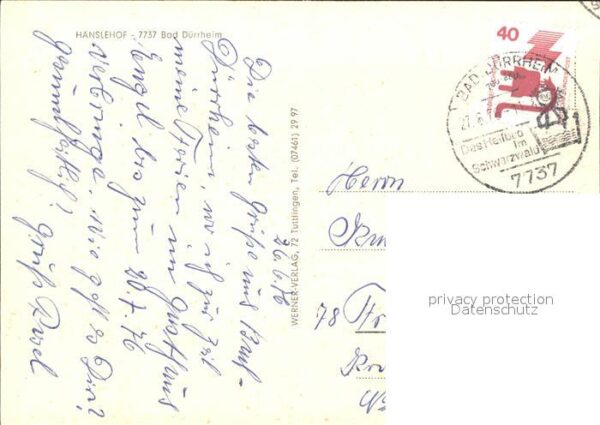 HÄNSLEHOF - 7737 Bad Dürrheim
26.6.76
Die besten Grüße aus Bad-
Dürrheim, wo ich zur Zeit
meine Ferien im Gasthaus
Engel bis zum 20.7.76
verbringe. Wie geht es Dir?
Gruß
WERNER-VERLAG, 72 Tuttlingen, Tel. (07461) 29 97
40
BAD DÜRRHEIM
27.6.
Das Heilbad
im
Schwarzwald
7737
Herrn
78
privacy protection
Datenschutz